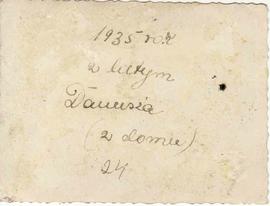 1935 rok
w lutym
Danusia
(w domu)
24